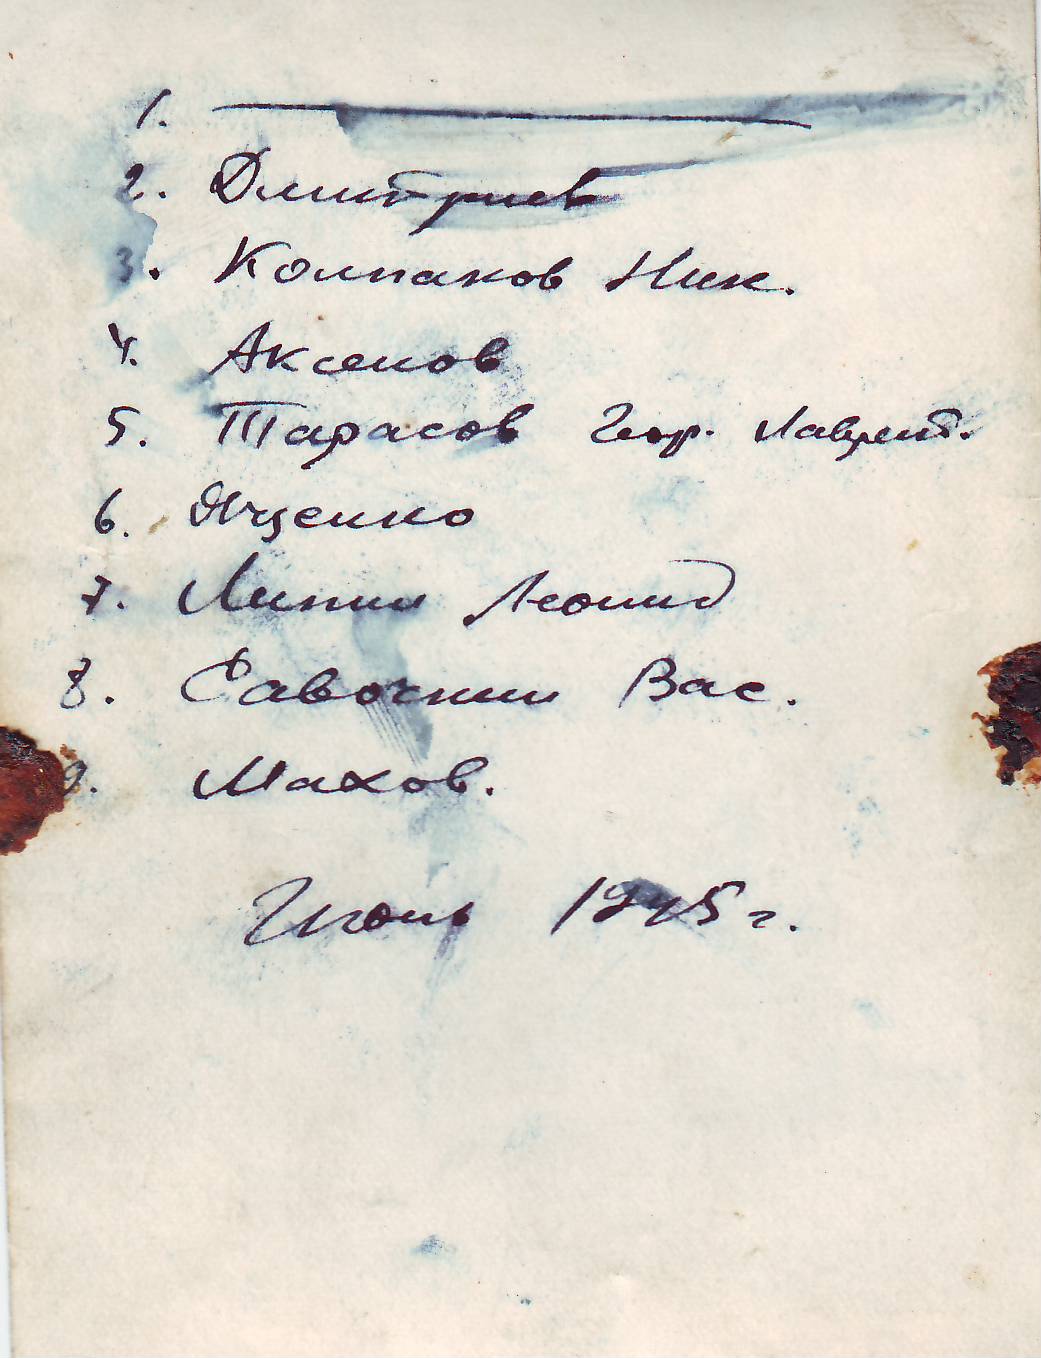 1. ———
2. Дмитриев
3. Колпаков Ник.
4. Аксенов
5. Тарасов Геор. Лаврент.
6. Яценко
7. Липин Леонид
8. Савочкин Вас.
9. Махов.
Июнь 1945 г.